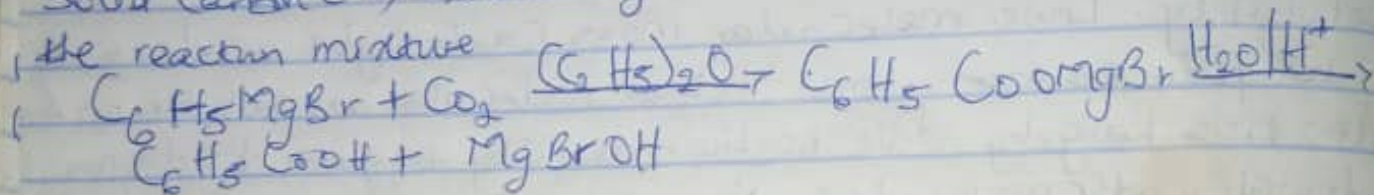 the reaction mixture
C₆H₅MgBr + CO₂ (C₂H₅)₂O→ C₆H₅COOMgBr H₂O/H⁺→
C₆H₅COOH + MgBrOH